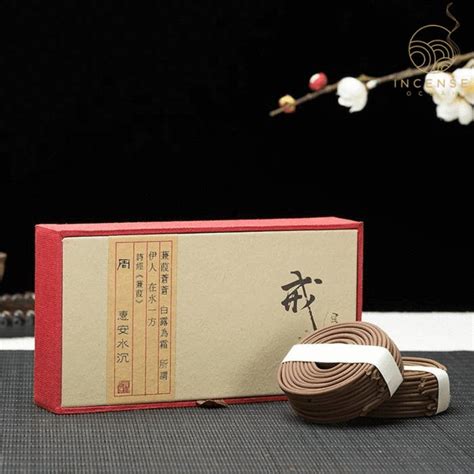 INCENSE
戒
蒹葭蒼蒼 白露為霜 所謂
伊人 在水一方
詩經《蒹葭》
周 惠安水沉